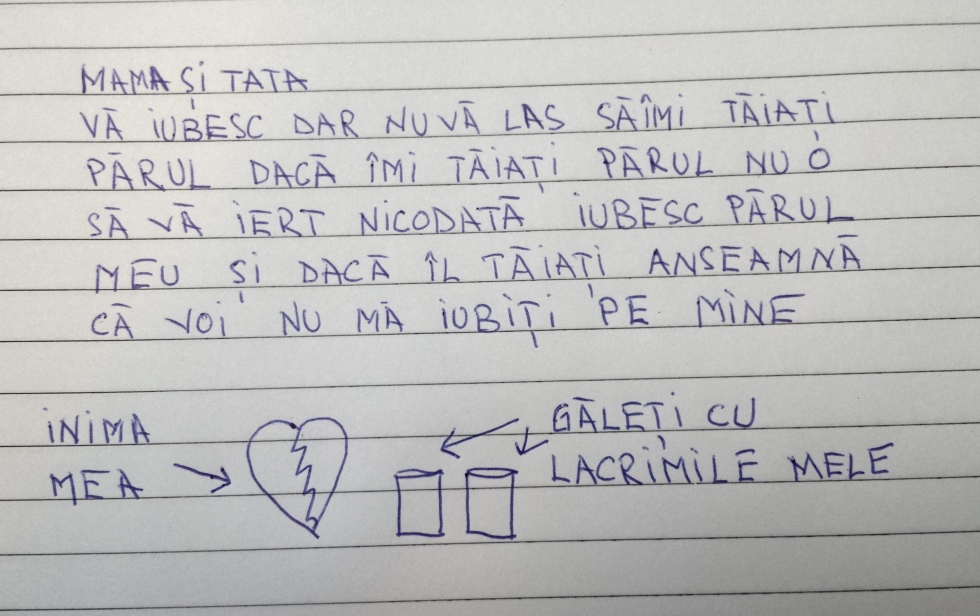 MAMA ȘI TATA
VĂ IUBESC DAR NU VĂ LAS SĂ ÎMI TĂIAȚI
PĂRUL DACĂ ÎMI TĂIAȚI PĂRUL NU O
SĂ VĂ IERT NICODATĂ IUBESC PĂRUL
MEU ȘI DACĂ ÎL TĂIAȚI ANSEAMNĂ
CĂ VOI NU MĂ IUBIȚI PE MINE
INIMA
MEA
GĂLEȚI CU
LACRIMILE MELE